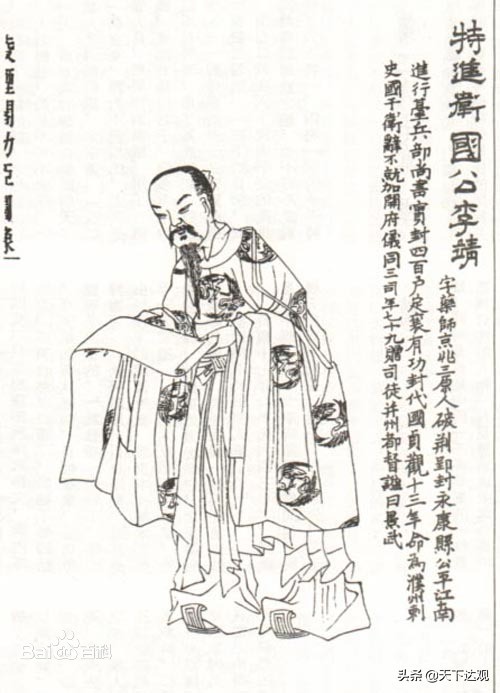 特進衛國公李靖
字藥師京兆三原人破荆郢封永康縣公平江南
進行臺兵部尚書實封四百户定襄有功封代國貞觀十三年命為濮州刺
史國于衛辭不就加開府儀同三司年七十九贈司徒并州都督謚曰景武
凌煙閣功臣圖像
Bai百科
头条 @天下达观